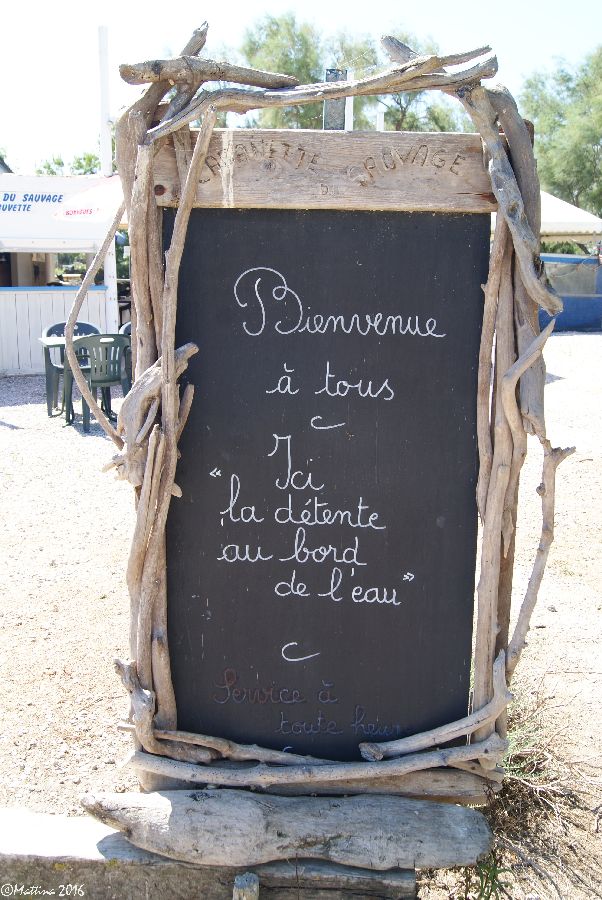 DU SAUVAGE
CABANETTE
DU SAUVAGE
Bienvenue
à tous
Ici
"la détente
au bord
de l'eau"
Service à
toute heure
©Mattina 2016